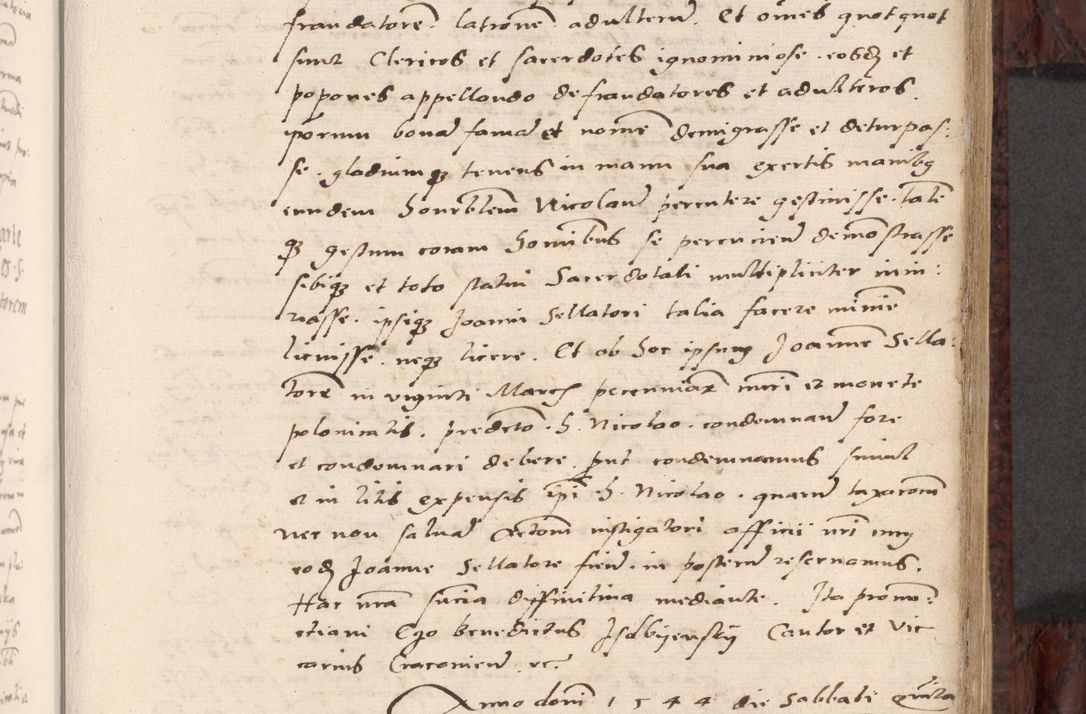 fraudatorem. latronem adulterum. Et omes quotquot
sunt Clericos et sacerdotes ignominiose. eosdem et
popones appellando defraudatores et adulteros.
ipsorum bonam famam et nomen denigrasse et deturpas:
se. gladiumque tenens in manu sua exertis manibus
eundem honorabilem Nicolaum percutere gestivisse. talem
que gestum coram hominibus se percussurum demonstrasse
sibique et toto statui Sacerdotali multipliciter iniu:
riasse. ipsique Joanni Sellatori talia facere minime
licuisse. neque licere. Et ob hoc ipsum Joannem Sella:
torem in viginti Marcis pecuniarum numeri et monete
polonicalis. predicto. h. Nicolao. condemnandum fore
et condemnari debere. prout condemnamus simul
et in litis expensis ipsi. h. Nicolao. quarum taxationem
nec non salvam actionem instigatori officii nostri cum
eodem Joanne Sellatore fiendum in posterum reservamus.
Hac nostra sententia diffinitiva mediante. Ita pronun:
ctiavi Ego benedictus Isdbijenskij Cantor et Vic
carius Cracoviensis. etc.
Anno domini 1544 die Sabbati quinta